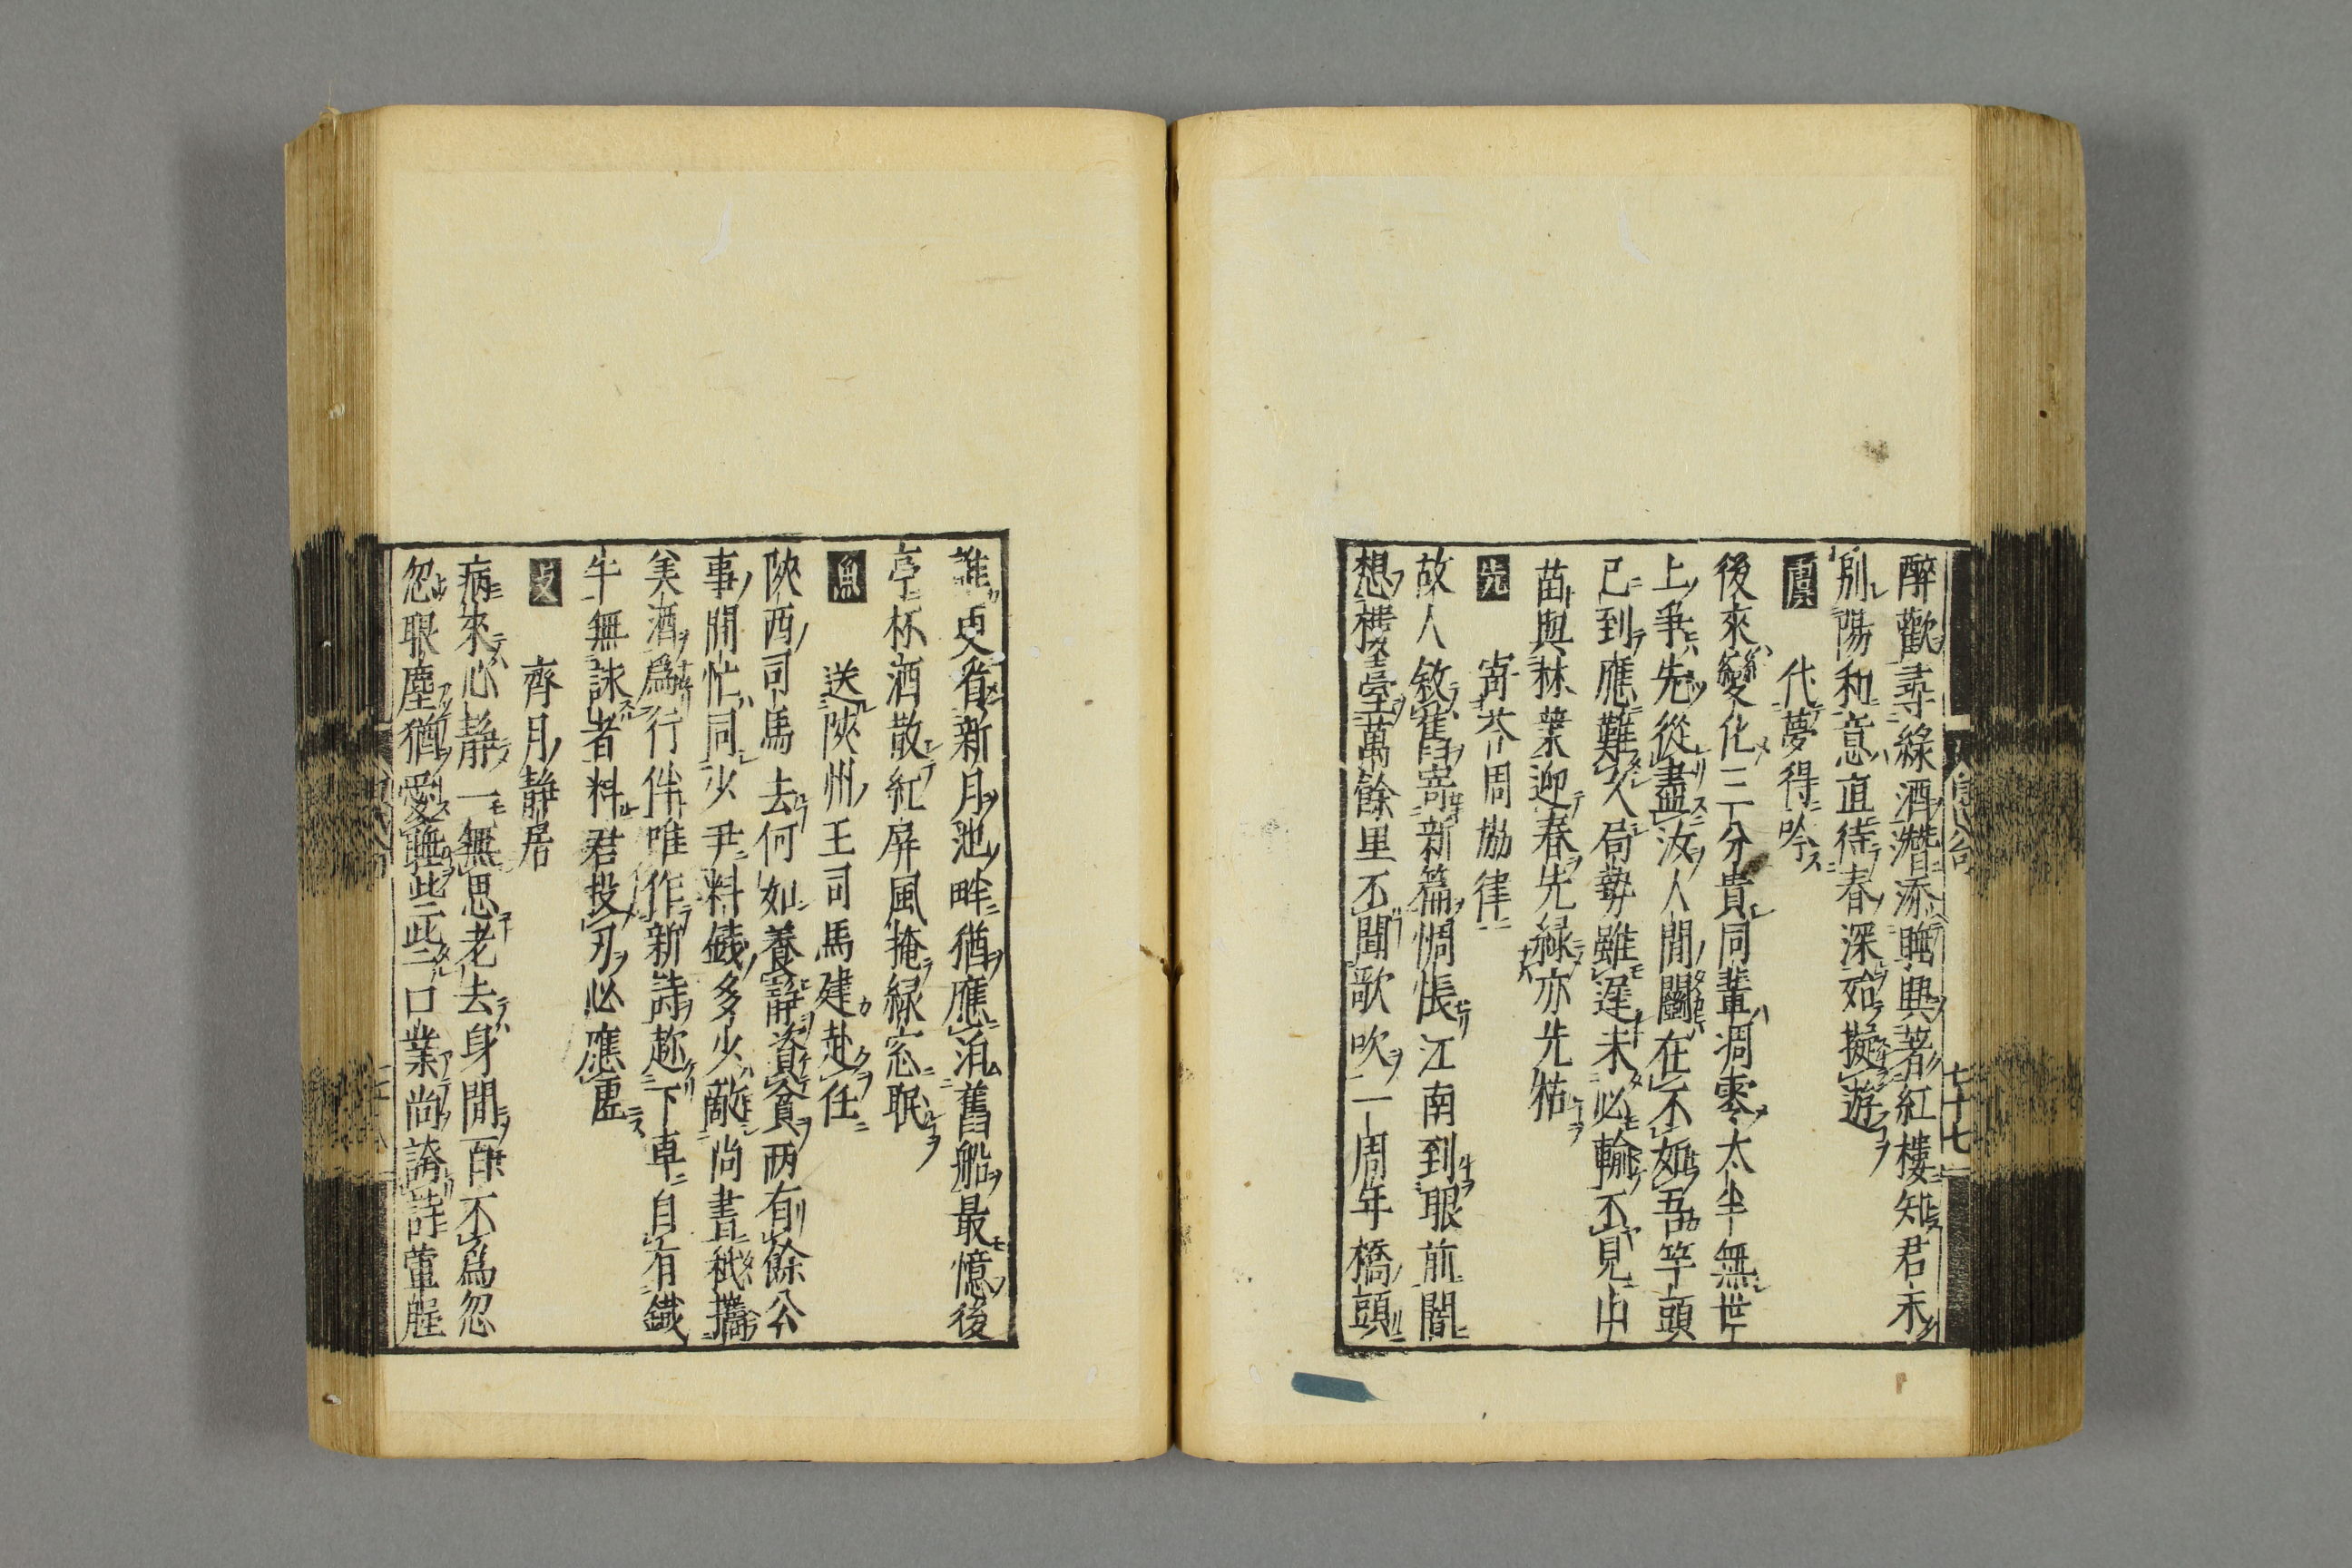 醉歡尋綠酒潛添睡興著紅樓知君未
別陽和意直待春深始擬遊
虞 代夢得吟
後來變化三分貴同輩凋零太半無世
上爭先從盡汝人間鬬在不如吾竿頭
已到應難久局勢雖遲未必輸不見山
苗與林葉迎春先綠亦先枯
先 寄答周協律
故人敘舊寄新篇惆悵江南到眼前闇
想樓臺萬餘里不聞歌吹一周年橋頭
七十七
誰更看新月池畔猶應泊舊船最憶後
亭杯酒散紅屏風掩綠窓眠
魚 送陝州王司馬建赴任
陝西司馬去何如養靜資貧兩有餘公
事閒忙同少尹料錢多少敵尚書秪攜
美酒爲行伴唯作新詩趂下車自有鐵
牛無詠者料君投刃必應虛
支 齊月靜居
病來心靜一無思老去身閒百不爲忽
忽眼塵猶愛睡些些口業尚誇詩葷腥